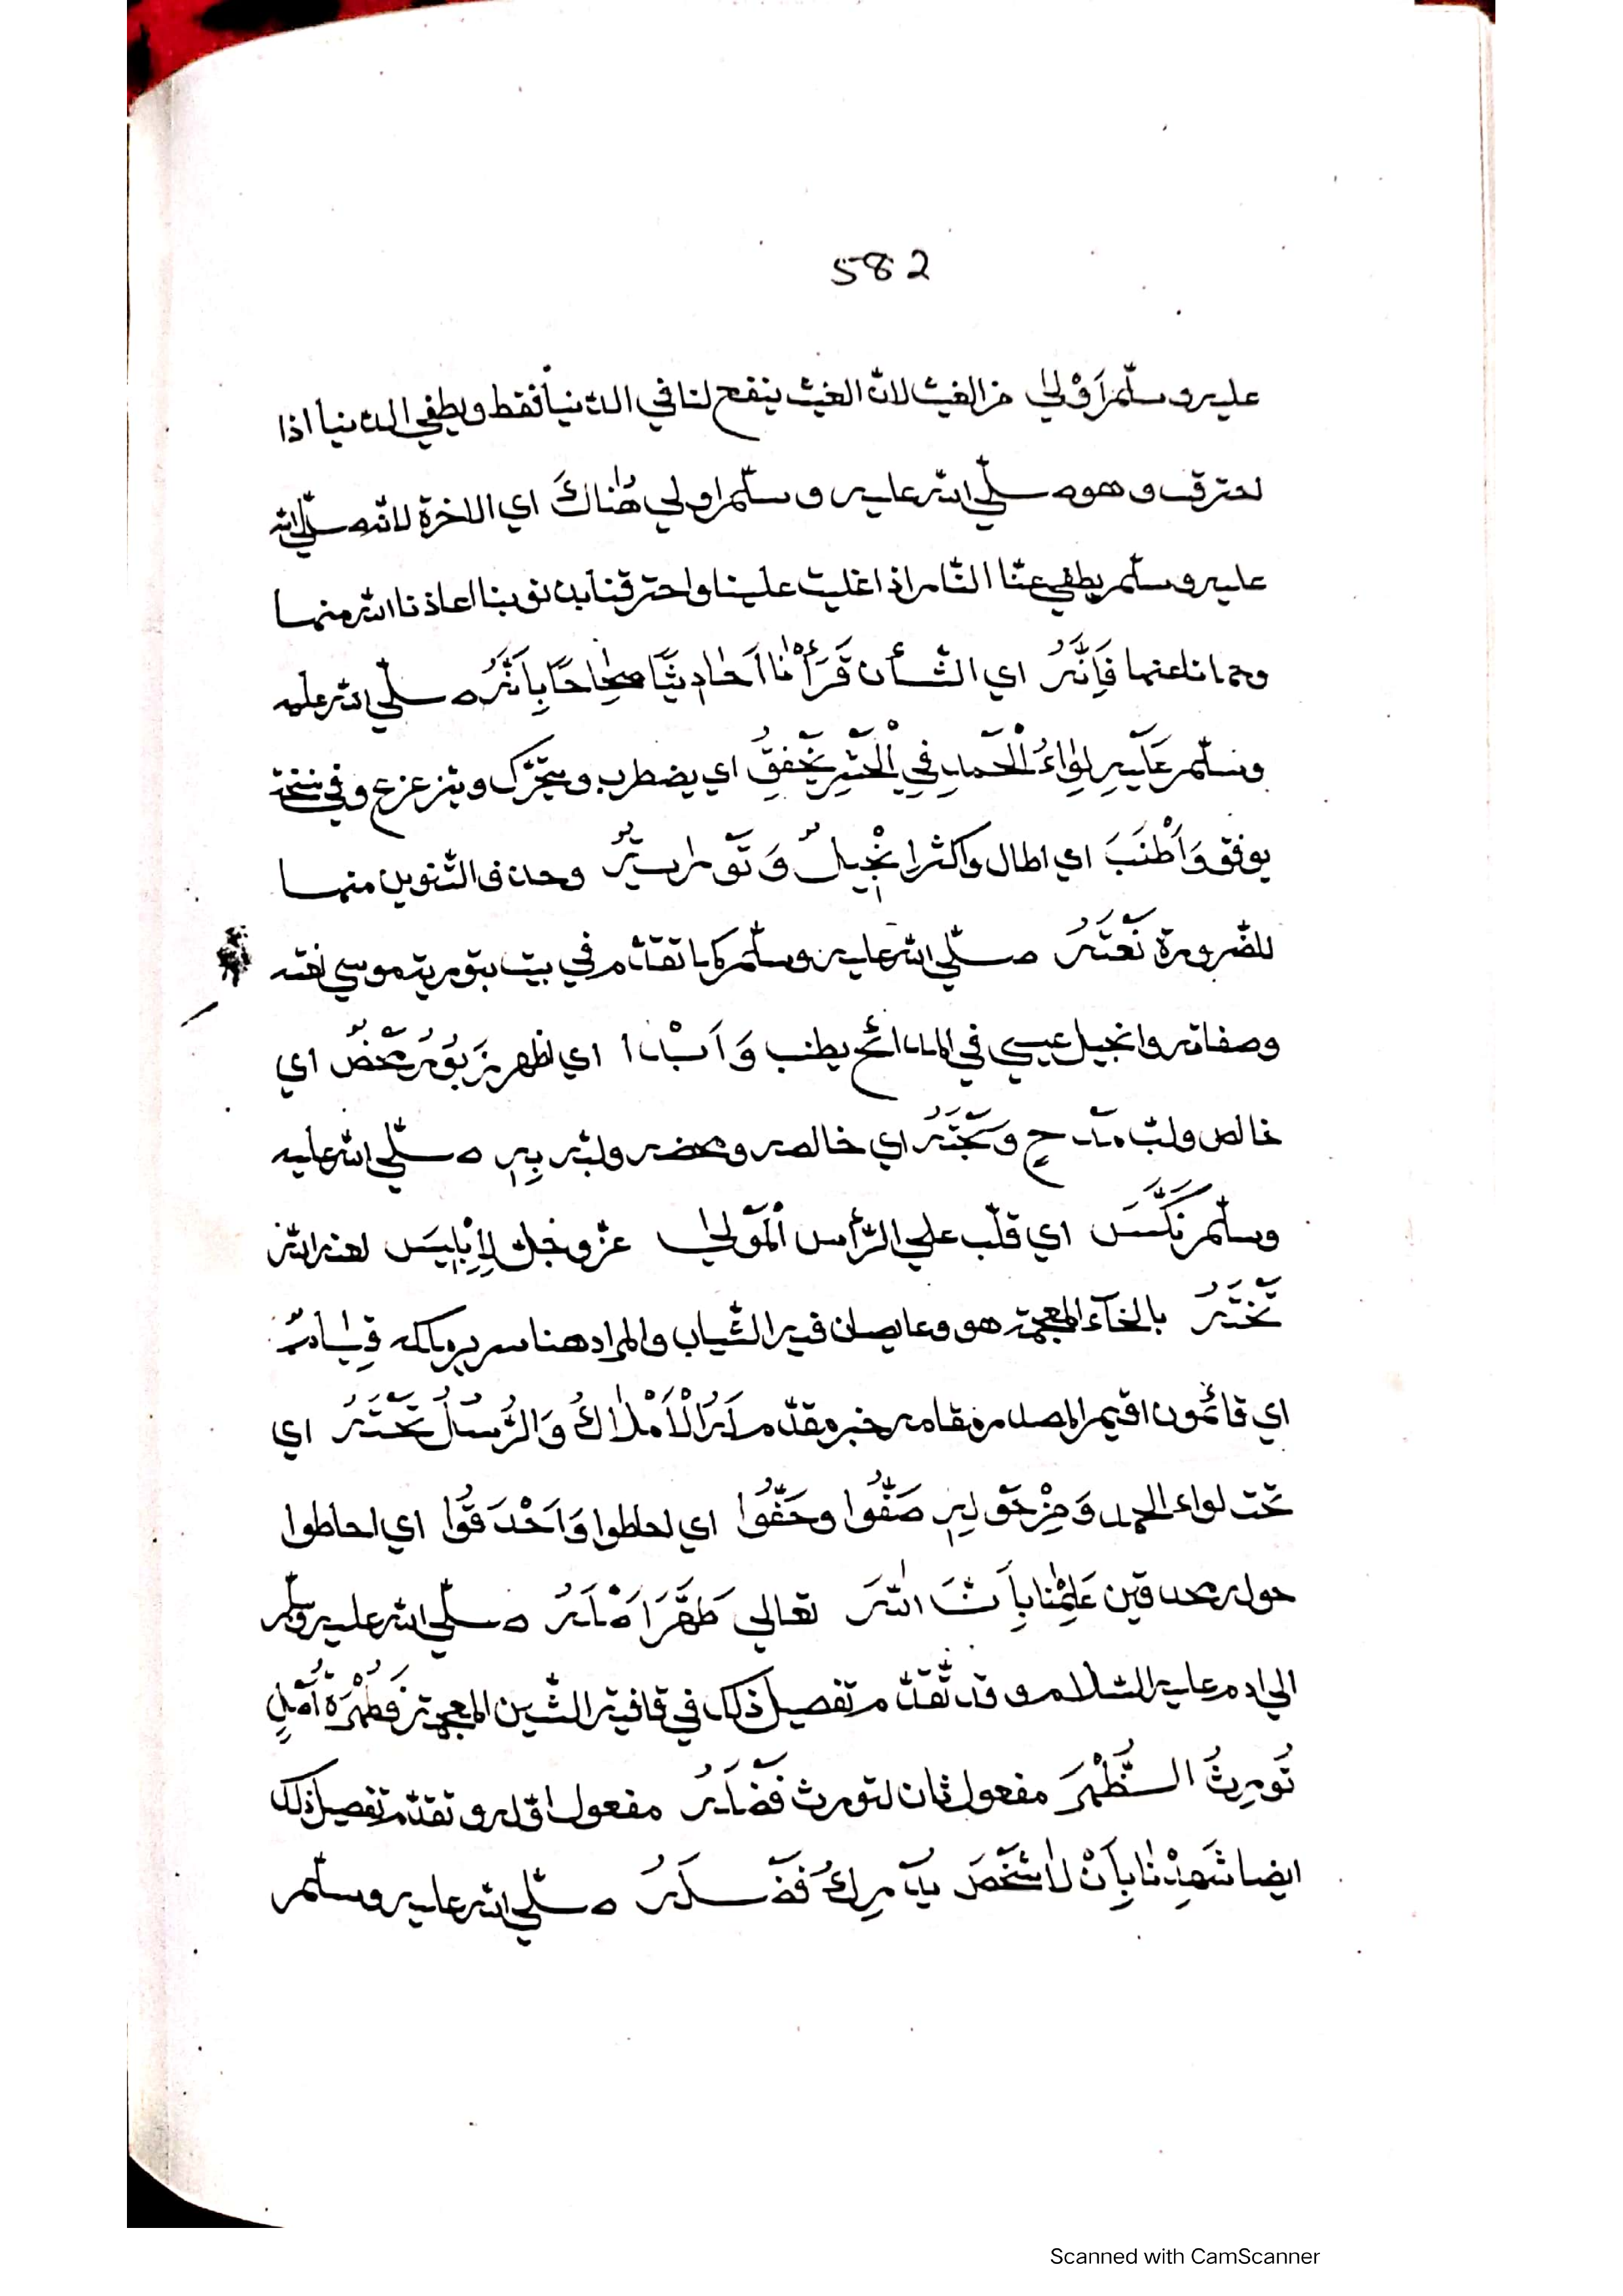 582
عليه وسلّم أَوْلىٰ من الغيث لانّ الغيث ينفع لنا في الدّنيا فقط ويطفي الدّنيا اذا
احترقت وهو صلّي الله عليه وسلّم اولي هُنٰاكَ اي الاخرة لانّه صلّي الله
عليه وسلّم يطفي عنّا النّار اذا غلبت علينا واحترقنا بذنوبنا اعاذنا الله منها
وحمانا عنها فَإِنَّهُ اي الشّأن قَرَأْنٰا اَحٰادِيثًا صِحٰاحًا بِاَنَّهُ صلّي الله عليه
وسلّم عَلَيْهِ لِوٰاءُ الْحَمْدِ فِي الْحَشْرِ يَخْفِقُ اي يضطرب ويتحرّك ويتزعزع وفي نسخة
يوفق وَاَطْنَبَ اي اطال واكثر اِنْجِيلٌ وَتَوْرٰيةٌ وحذف التّنوين منهما
للضّرورة نَعْتَهُ صلّي الله عليه وسلّم كما تقدّم في بيت بتورية موسي نعته
وصفاته وانجيل عيسي في المدائح يطنب وَاَبْدٰا اي اظهر زَبُورٌ مَحْضُ اي
خالص ولبّ مَدْحٍ وَبَحْتَهُ اي خالصه ومحضه ولبّه بِهِ صلّي الله عليه
وسلّم نَكَّسَ اي قلّب علي الرّأس الْمَوْلىٰ عزّ وجلّ لِإِبْلِيسَ لعنه الله
تَخْتَهُ بالخآء المعجمة هو وعا يصان فيه الثّياب والمراد هنا سرير ملكه قِيٰامٌ
اي قائمون اقيم المصدر مقامه خبر مقدّم لَهُ الْأَمْلٰاكُ وَالرُّسْلُ تَحْتَهُ اي
تحت لواء الحمد وَمِنْ حَوْلِهِ صَفُّوا وحَفُّوا اي احاطوا وَاَحْدَقُوا اي احاطوا
حوله محدقين عَلِمْنٰا بِاَنَّ اللّٰهَ تعالي طَهَّرَ اَصْلَهُ صلّي الله عليه وسلّم
الي ادم عليه السّلام وقد تّقدّم تفصيل ذلك في قافية الشّين المعجمة فَطُهْرَةُ اَصْلٍ
تُورِثُ الطُّهْرَ مفعول ثان لتورث فَصْلَهُ مفعول اوّله وتقدّم تفصيل ذلك
ايضا شَهِدْنٰا بِاَنْ لٰا شَخْصَ يُدْرِكُ فَضْلَهُ صلّي الله عليه وسلّم
Scanned with CamScanner